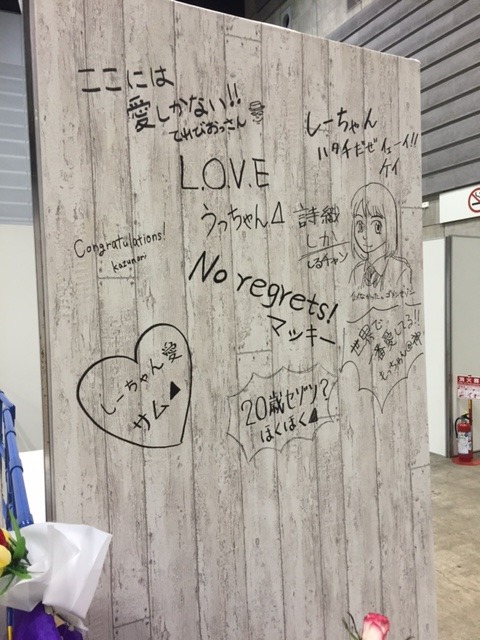 ここには
愛しかない!!
てれびおっさん
しーちゃん
ハタチだぜ イェーイ!!
ケイ
L.O.V.E
うっちゃん⊿
詩織
しか
しるチャン
Congratulations!
kazunori
No regrets!
マッキー
世界で
一番愛してる!!
しーちゃん愛
サム▲
20歳セゾン?
ほくほく▲